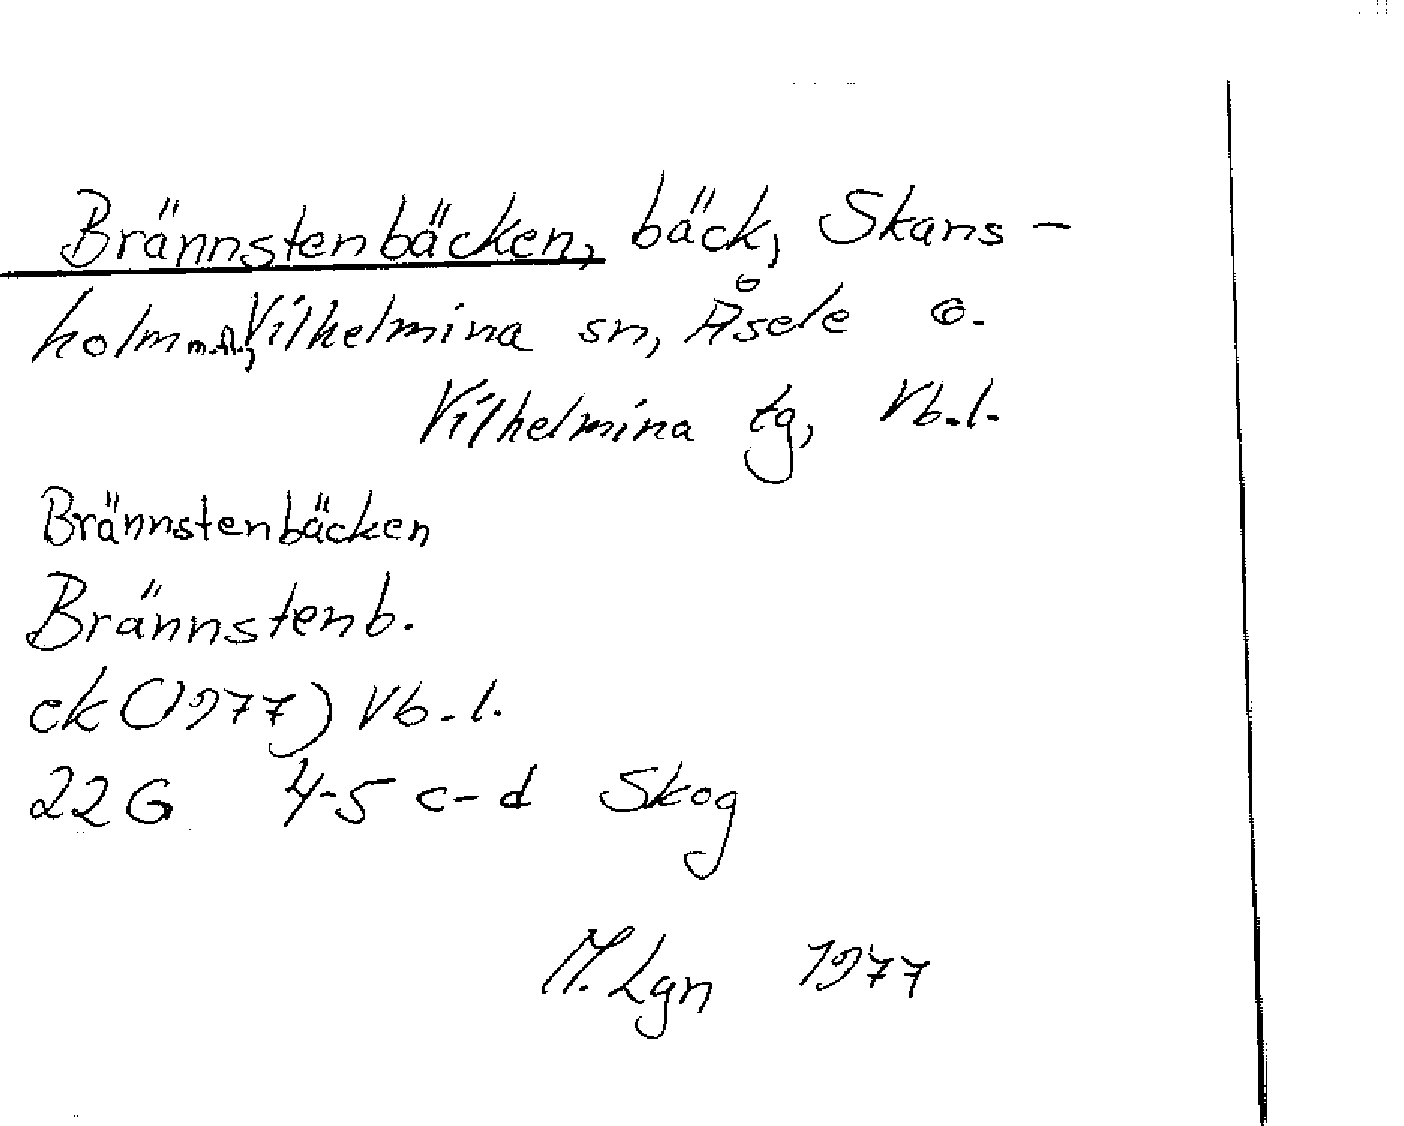 Brännstenbäcken, bäck, Skans-
holm m.fl., Vilhelmina sn, Åsele o.
Vilhelmina tg, Vb.l.
Brännstenbäcken
Brännstenb.
ek (1977) Vb.l.
22G 4-5 c-d Skog
M. Lgn 1977